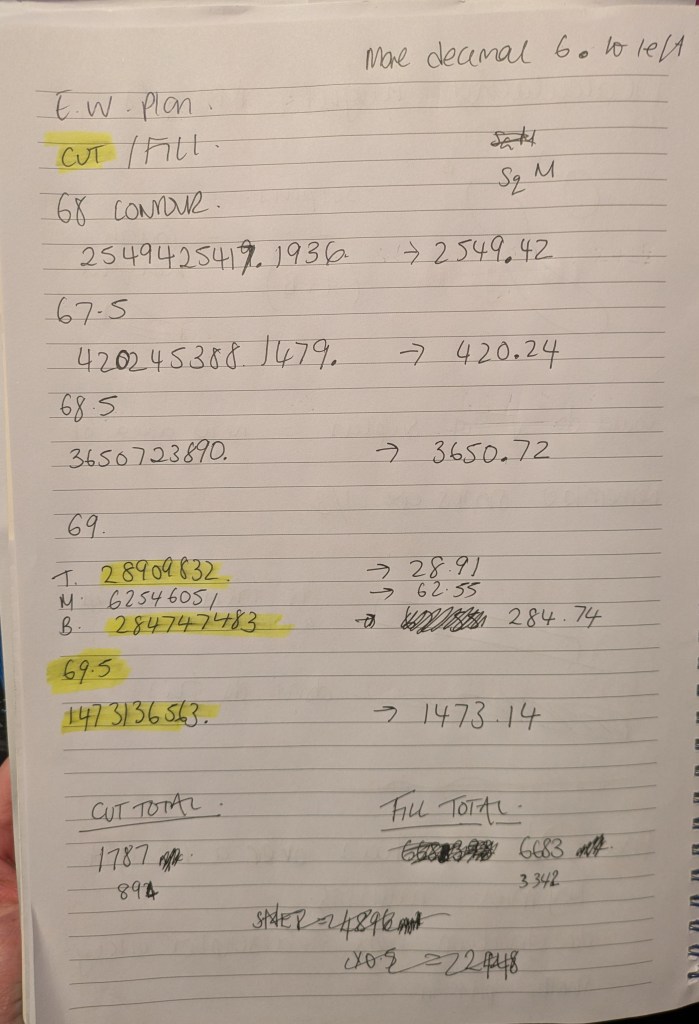 More decimal 6. to left
E.W. Plan.
CUT / FILL.
Sq M
68 CONTOUR.
2549425419.1936 → 2549.42
67.5
420245388.1479. → 420.24
68.5
3650723890. → 3650.72
69.
T. 28909832. → 28.91
M. 62546051 → 62.55
B. 284747483 → 284.74
69.5
1473136563. → 1473.14
CUT TOTAL: FILL TOTAL.
1787 6683
894 3342